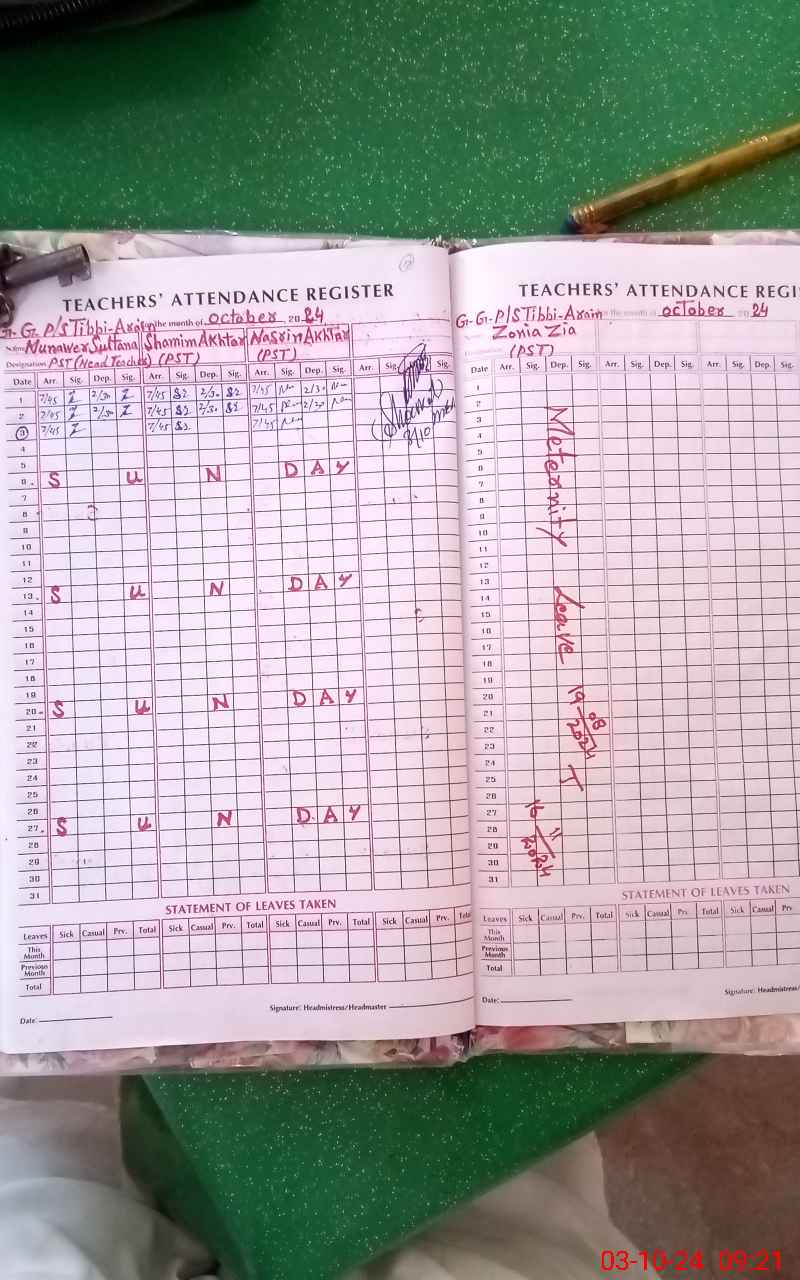 TEACHERS' ATTENDANCE REGISTER
G. G. P/S Tibbi-Arain the month of October 2024
Name Munawer Sultana Shamim Akhtar Nasrin Akhtar
Designation PST (Head Teacher) (PST) (PST)
Date Arr. Sig. Dep. Sig. Arr. Sig. Dep. Sig. Arr. Sig. Dep. Sig. Arr. Sig. Sig.
1 7/45 2/30 7/45 2/30 7/45 2/30
2 7/45 2/30 7/45 2/30 7/45 2/30
3 7/45 7/45 7/45
3/10
4
5
6. S U N D A Y
7
8
9
10
11
12
13. S U N D A Y
14
15
16
17
18
19
20. S U N D A Y
21
22
23
24
25
26
27. S U N D A Y
28
29
30
31
STATEMENT OF LEAVES TAKEN
Leaves Sick Casual Prv. Total Sick Casual Prv. Total Sick Casual Prv. Total Sick Casual Prv. Total
This Month
Previous Month
Total
Signature: Headmistress/Headmaster
Date:
TEACHERS' ATTENDANCE REGI
G. G. P/S Tibbi-Arain the month of OcTober 2024
Zonia Zia
(PST)
Date Arr. Sig. Dep. Sig. Arr. Sig. Dep. Sig. Arr. Sig. Dep. Sig.
1
2
3
4
5
6
7
8
9
10
11
12
13
14
15
16
17
18
19
20
21
22
23
24
25
26
27
28
29
30
31
Meternity Leave 19-08/2024 T
16-11/2024
STATEMENT OF LEAVES TAKEN
Leaves Sick Casual Prv. Total Sick Casual Prv. Total Sick Casual Prv.
This Month
Previous Month
Total
Signature: Headmistress/
Date:
03-10-24 09:21